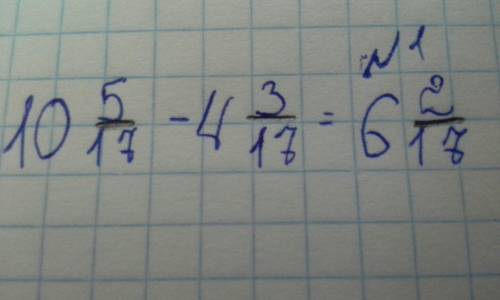 №1
10 5/17 - 4 3/17 = 6 2/17